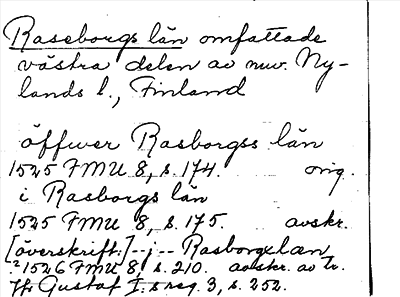 Raseborgs län omfattade
västra delen av nuv. Ny-
lands l., Finland
öffwer Rasborgss län
1525 FMU 8, s. 174. orig.
i Rasborgs län
1525 FMU 8, s. 175. avskr.
[överskrift:] --j-- Rasborgx læn
?1526 FMU 8, s. 210. avskr. av tr.
Jfr Gustaf I:s reg. 3, s. 252.